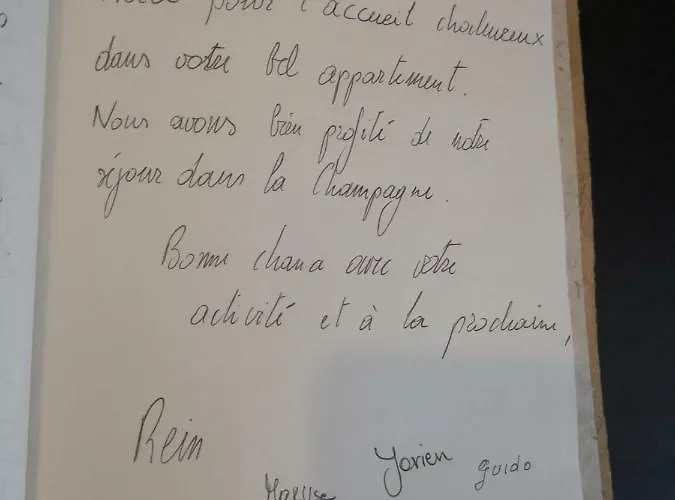 pour l'accueil chaleureux
dans votre bel appartement.
Nous avons bien profité de notre
séjour dans la Champagne.
Bonne chance avec votre
activité et à la prochaine,
Rein
Yorien Guido